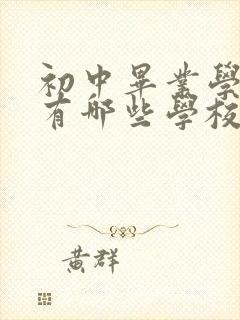 初中畢業學
有哪些學校
黃群